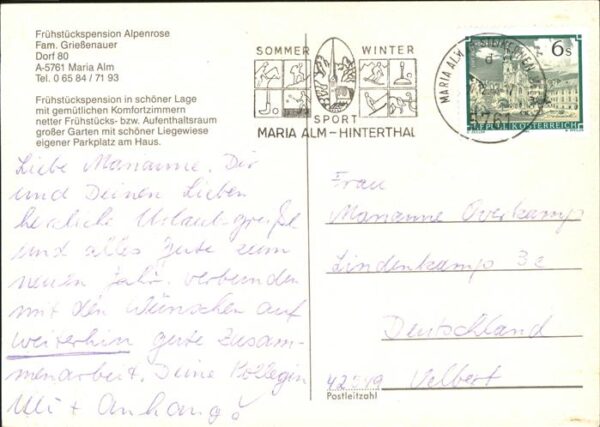 Frühstückspension Alpenrose
Fam. Grießenauer
Dorf 80
A-5761 Maria Alm
Tel. 0 65 84 / 71 93
Frühstückspension in schöner Lage
mit gemütlichen Komfortzimmern
netter Frühstücks- bzw. Aufenthaltsraum
großer Garten mit schöner Liegewiese
eigener Parkplatz am Haus.
SOMMER WINTER
SPORT
MARIA ALM-HINTERTHAL
MARIA ALM
5761
6s
REPUBLIK ÖSTERREICH
Liebe Marianne. Dir
und Deinen Lieben
herzliche Urlaubsgrüße
und alles Gute zum
neuen Jahr, verbunden
mit den Wünschen auf
weiterhin gute Zusam-
menarbeit. Deine Kollegin
Uli + Anhang!
Frau
Marianne Overkamp
Lindenkamp 3c
Deutschland
Velbert
Postleitzahl